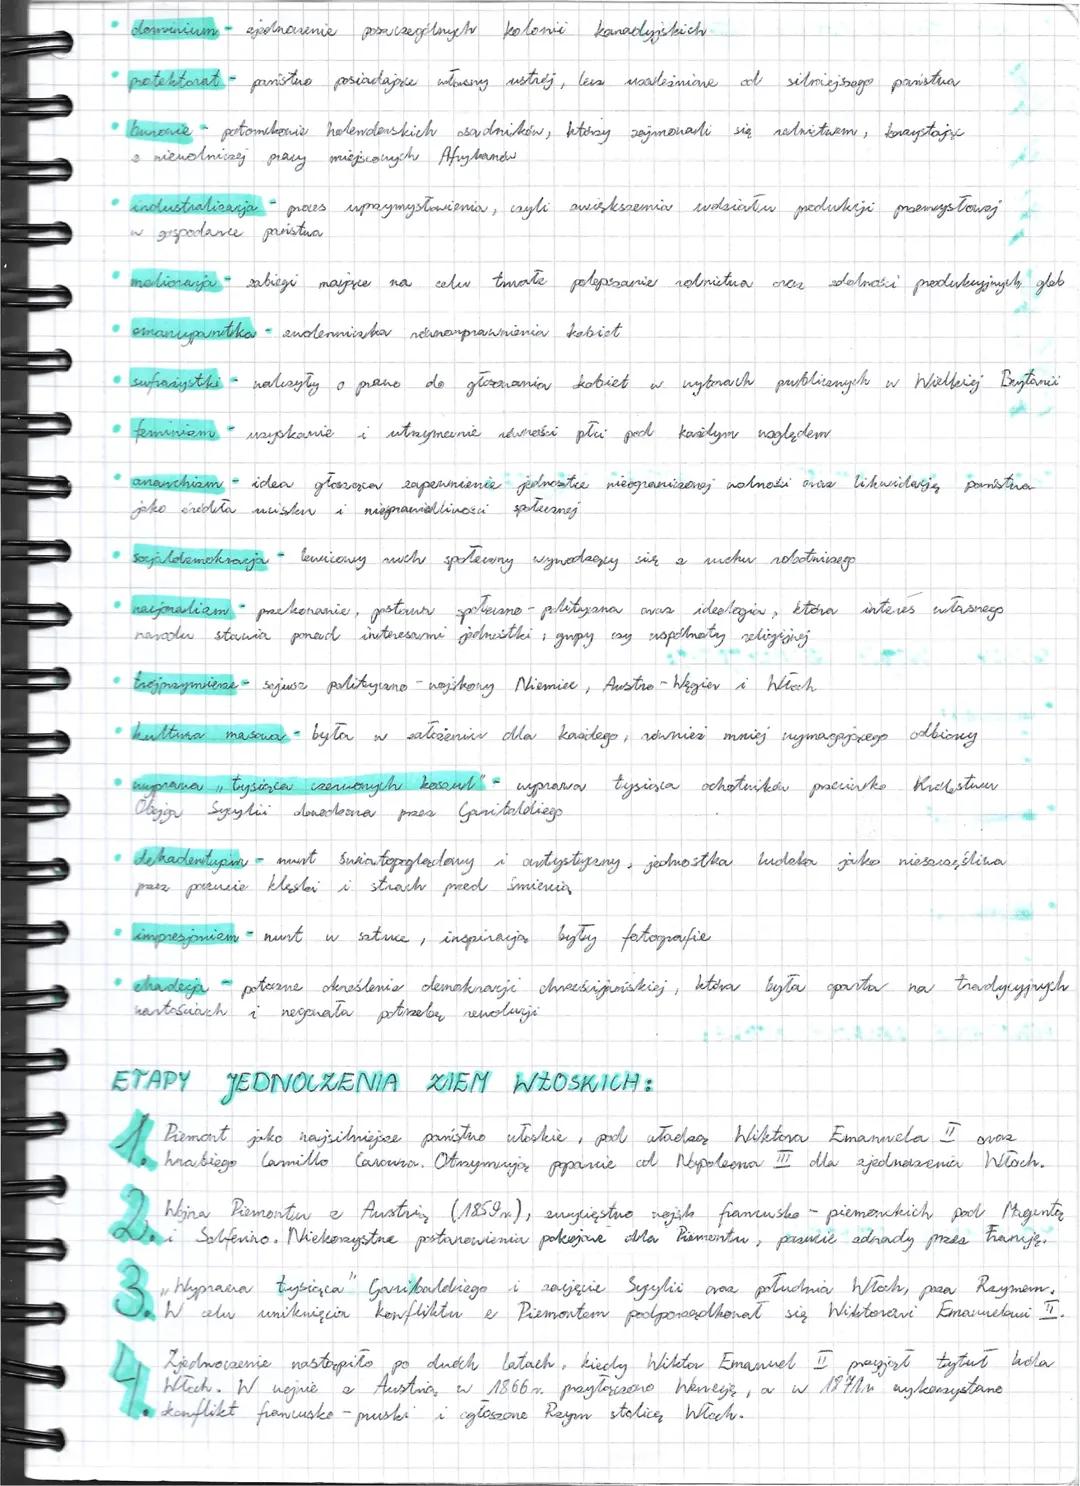 • dominium - zjednoczenie poszczególnych kolonii kanadyjskich
• protektorat - państwo posiadające własny ustrój, lecz uzależnione od silniejszego państwa
• burowie - potomkowie holenderskich osadników, którzy zajmowali się rolnictwem, korzystając
z niewolniczej pracy miejscowych Afrykanów
• industralizacja - proces uprzymysłowienia, czyli zwiększenia udziału produkcji przemysłowej
w gospodarce państwa
• melioracja - zabiegi mające na celu trwałe polepszanie rolnictwa oraz zdolności produkcyjnych gleb
• emancypantka - zwolenniczka równouprawnienia kobiet
• sufrażystki - walczyły o prawo do głosowania kobiet w wyborach publicznych w Wielkiej Brytanii
• feminizm - uzyskanie i utrzymanie równości płci pod każdym względem
• anarchizm - idea głosząca zapewnienie jednostce nieograniczonej wolności oraz likwidację państwa
jako źródła ucisku i niesprawiedliwości społecznej
• socjaldemokracja - lewicowy ruch społeczny wywodzący się z ruchu robotniczego
• nacjonalizm - przekonanie, postawa społeczno-polityczna oraz ideologia, która interes własnego
narodu stawia ponad interesami jednostki, grupy czy wspólnoty religijnej
• trójprzymierze - sojusz polityczno-wojskowy Niemiec, Austro-Węgier i Włoch
• kultura masowa - była w założeniu dla każdego, również mniej wymagającego odbiorcy
• wyprawa „tysiąca czerwonych koszul" - wyprawa tysiąca ochotników przeciwko Królestwu
Obojga Sycylii dowodzona przez Garibaldiego
• dekadentyzm - nurt światopoglądowy i artystyczny, jednostka ludzka jako nieszczęśliwa
przez poczucie klęski i strach przed śmiercią
• impresjonizm - nurt w sztuce, inspiracją były fotografie
• chadecja - potoczne określenie demokracji chrześcijańskiej, która była oparta na tradycyjnych
wartościach i negowała potrzebę rewolucji
ETAPY JEDNOCZENIA ZIEM WŁOSKICH:
1. Piemont jako najsilniejsze państwo włoskie, pod władzą Wiktora Emanuela II oraz
hrabiego Camillo Cavoura. Otrzymują poparcie od Napoleona III dla zjednoczenia Włoch.
2. Wojna Piemontu z Austrią (1859r.), zwycięstwo wojsk francusko-piemonckich pod Magentą
i Solferino. Niekorzystne postanowienia pokojowe dla Piemontu, poczucie zdrady przez Francję.
3. „Wyprawa tysiąca" Garibaldiego i zajęcie Sycylii oraz południa Włoch, poza Rzymem.
W celu uniknięcia konfliktu z Piemontem podporządkował się Wiktorowi Emanuelowi II.
4. Zjednoczenie nastąpiło po dwóch latach, kiedy Wiktor Emanuel II przyjął tytuł króla
Włoch. W wojnie z Austrią w 1866r. przyłączono Wenecję, a w 1871r. wykorzystano
konflikt francusko-pruski i ogłoszono Rzym stolicą Włoch.